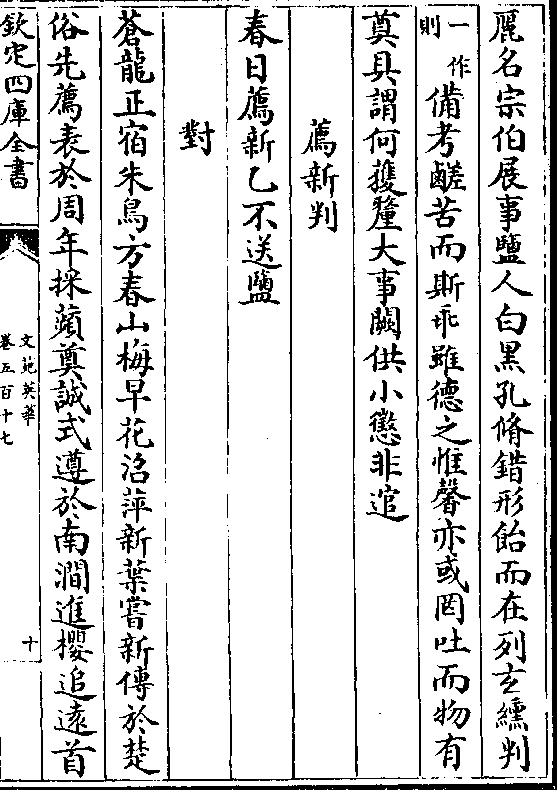 麗名宗伯展事鹽人白黒孔脩錯形飴而在列玄纁判
一作則備考鹺苦而斯乖雖德之惟馨亦或罔吐而物有
奠具謂何獲釐大事闕供小懲非逭
薦新判
春日薦新乙不送鹽
對
蒼龍正宿朱鳥方春山梅早花沼萍新葉嘗新傳於楚
俗先薦表於周年採蘋奠誠式遵於南澗進櫻追遠首
欽定四庫全書
文苑英華
卷五百十七
十